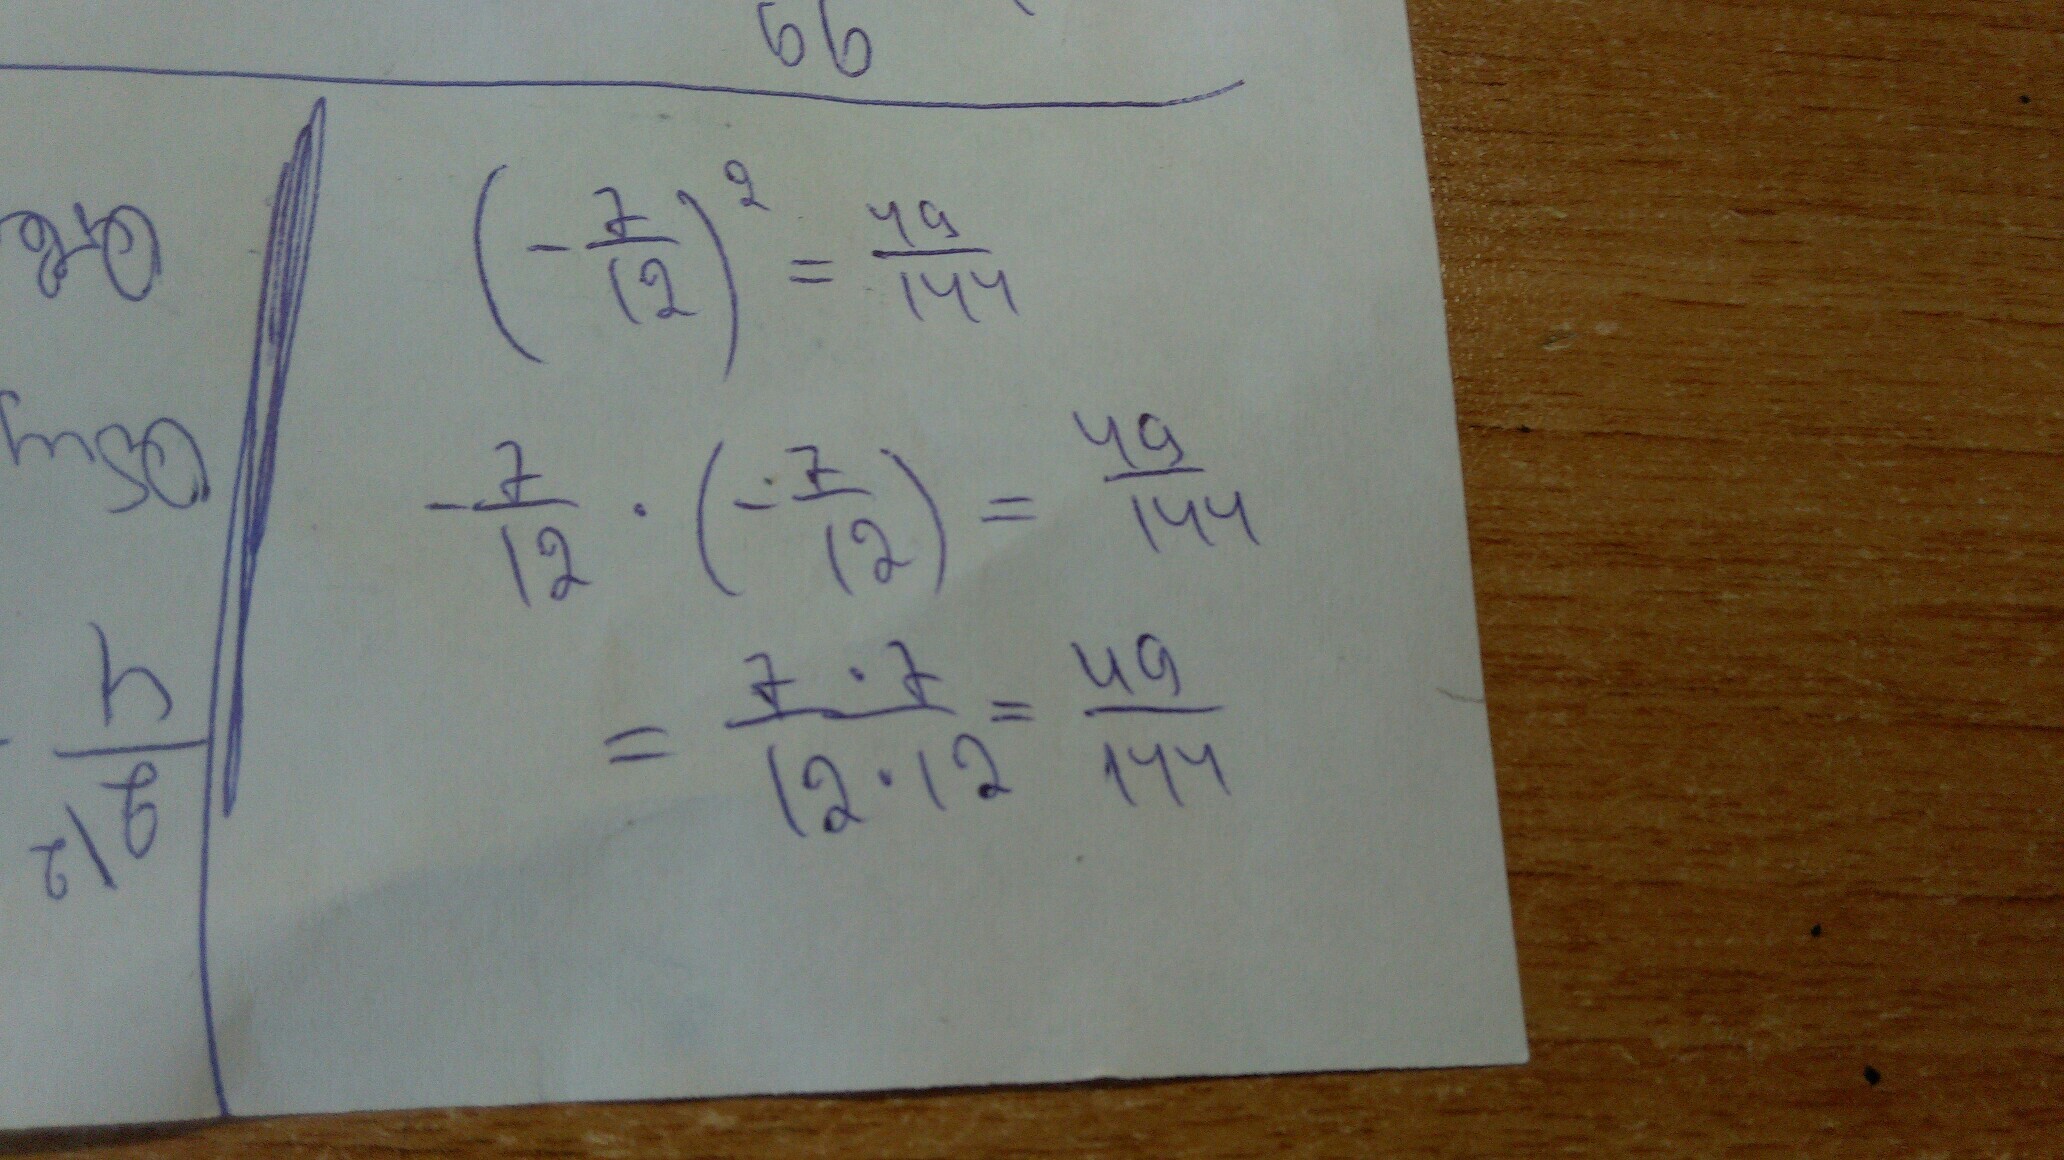 66
(-7/12)² = 49/144
-7/12 · (-7/12) = 49/144
= 7·7/12·12 = 49/144